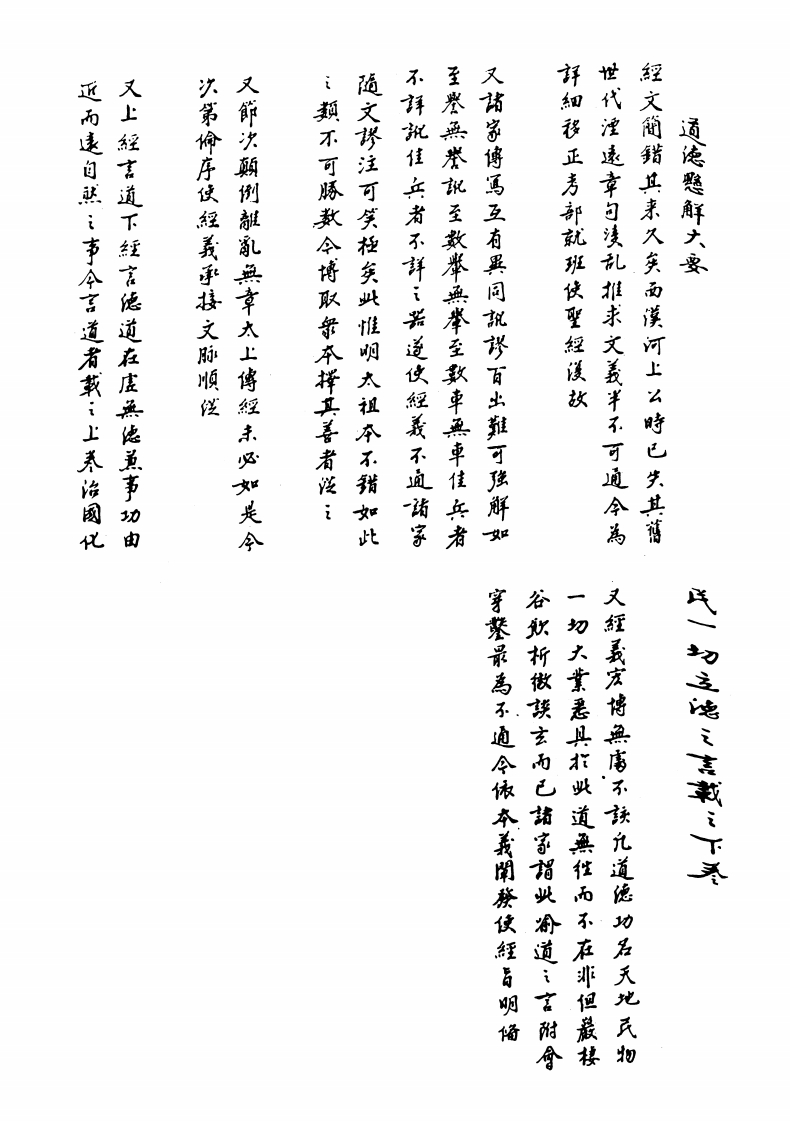 道德懸解大要
經文簡錯其来久矣而漢河上公時已失其舊
世代湮遠章句淩乱推求文義半不可通今為
詳細移正考部就班使聖經復故
又諸家傳寫互有異同訛謬百出難可強解如
至譽無譽訛至数舉無舉至數車無車佳兵者
不詳訛佳兵者不詳之器遂使經義不通諸家
隨文謬注可笑極矣此惟明太祖本不錯如此
之類不可勝数今博取衆本擇其善者從之
又節次顛倒離亂無章太上傳經未必如是今
次第倫序使經義承接文脉順從
又上經言道下經言德道在虛無德兼事功由
近而遠自然之事今言道者載之上卷治國化
民一切立德之言載之下卷
又經義宏博無所不該凡道德功名天地民物
一切大業悉具於此道無往而不在非但嚴棲
谷飲析微談玄而已諸家謂此喻道之言附會
穿鑿最為不通今依本義闡發使經旨明備